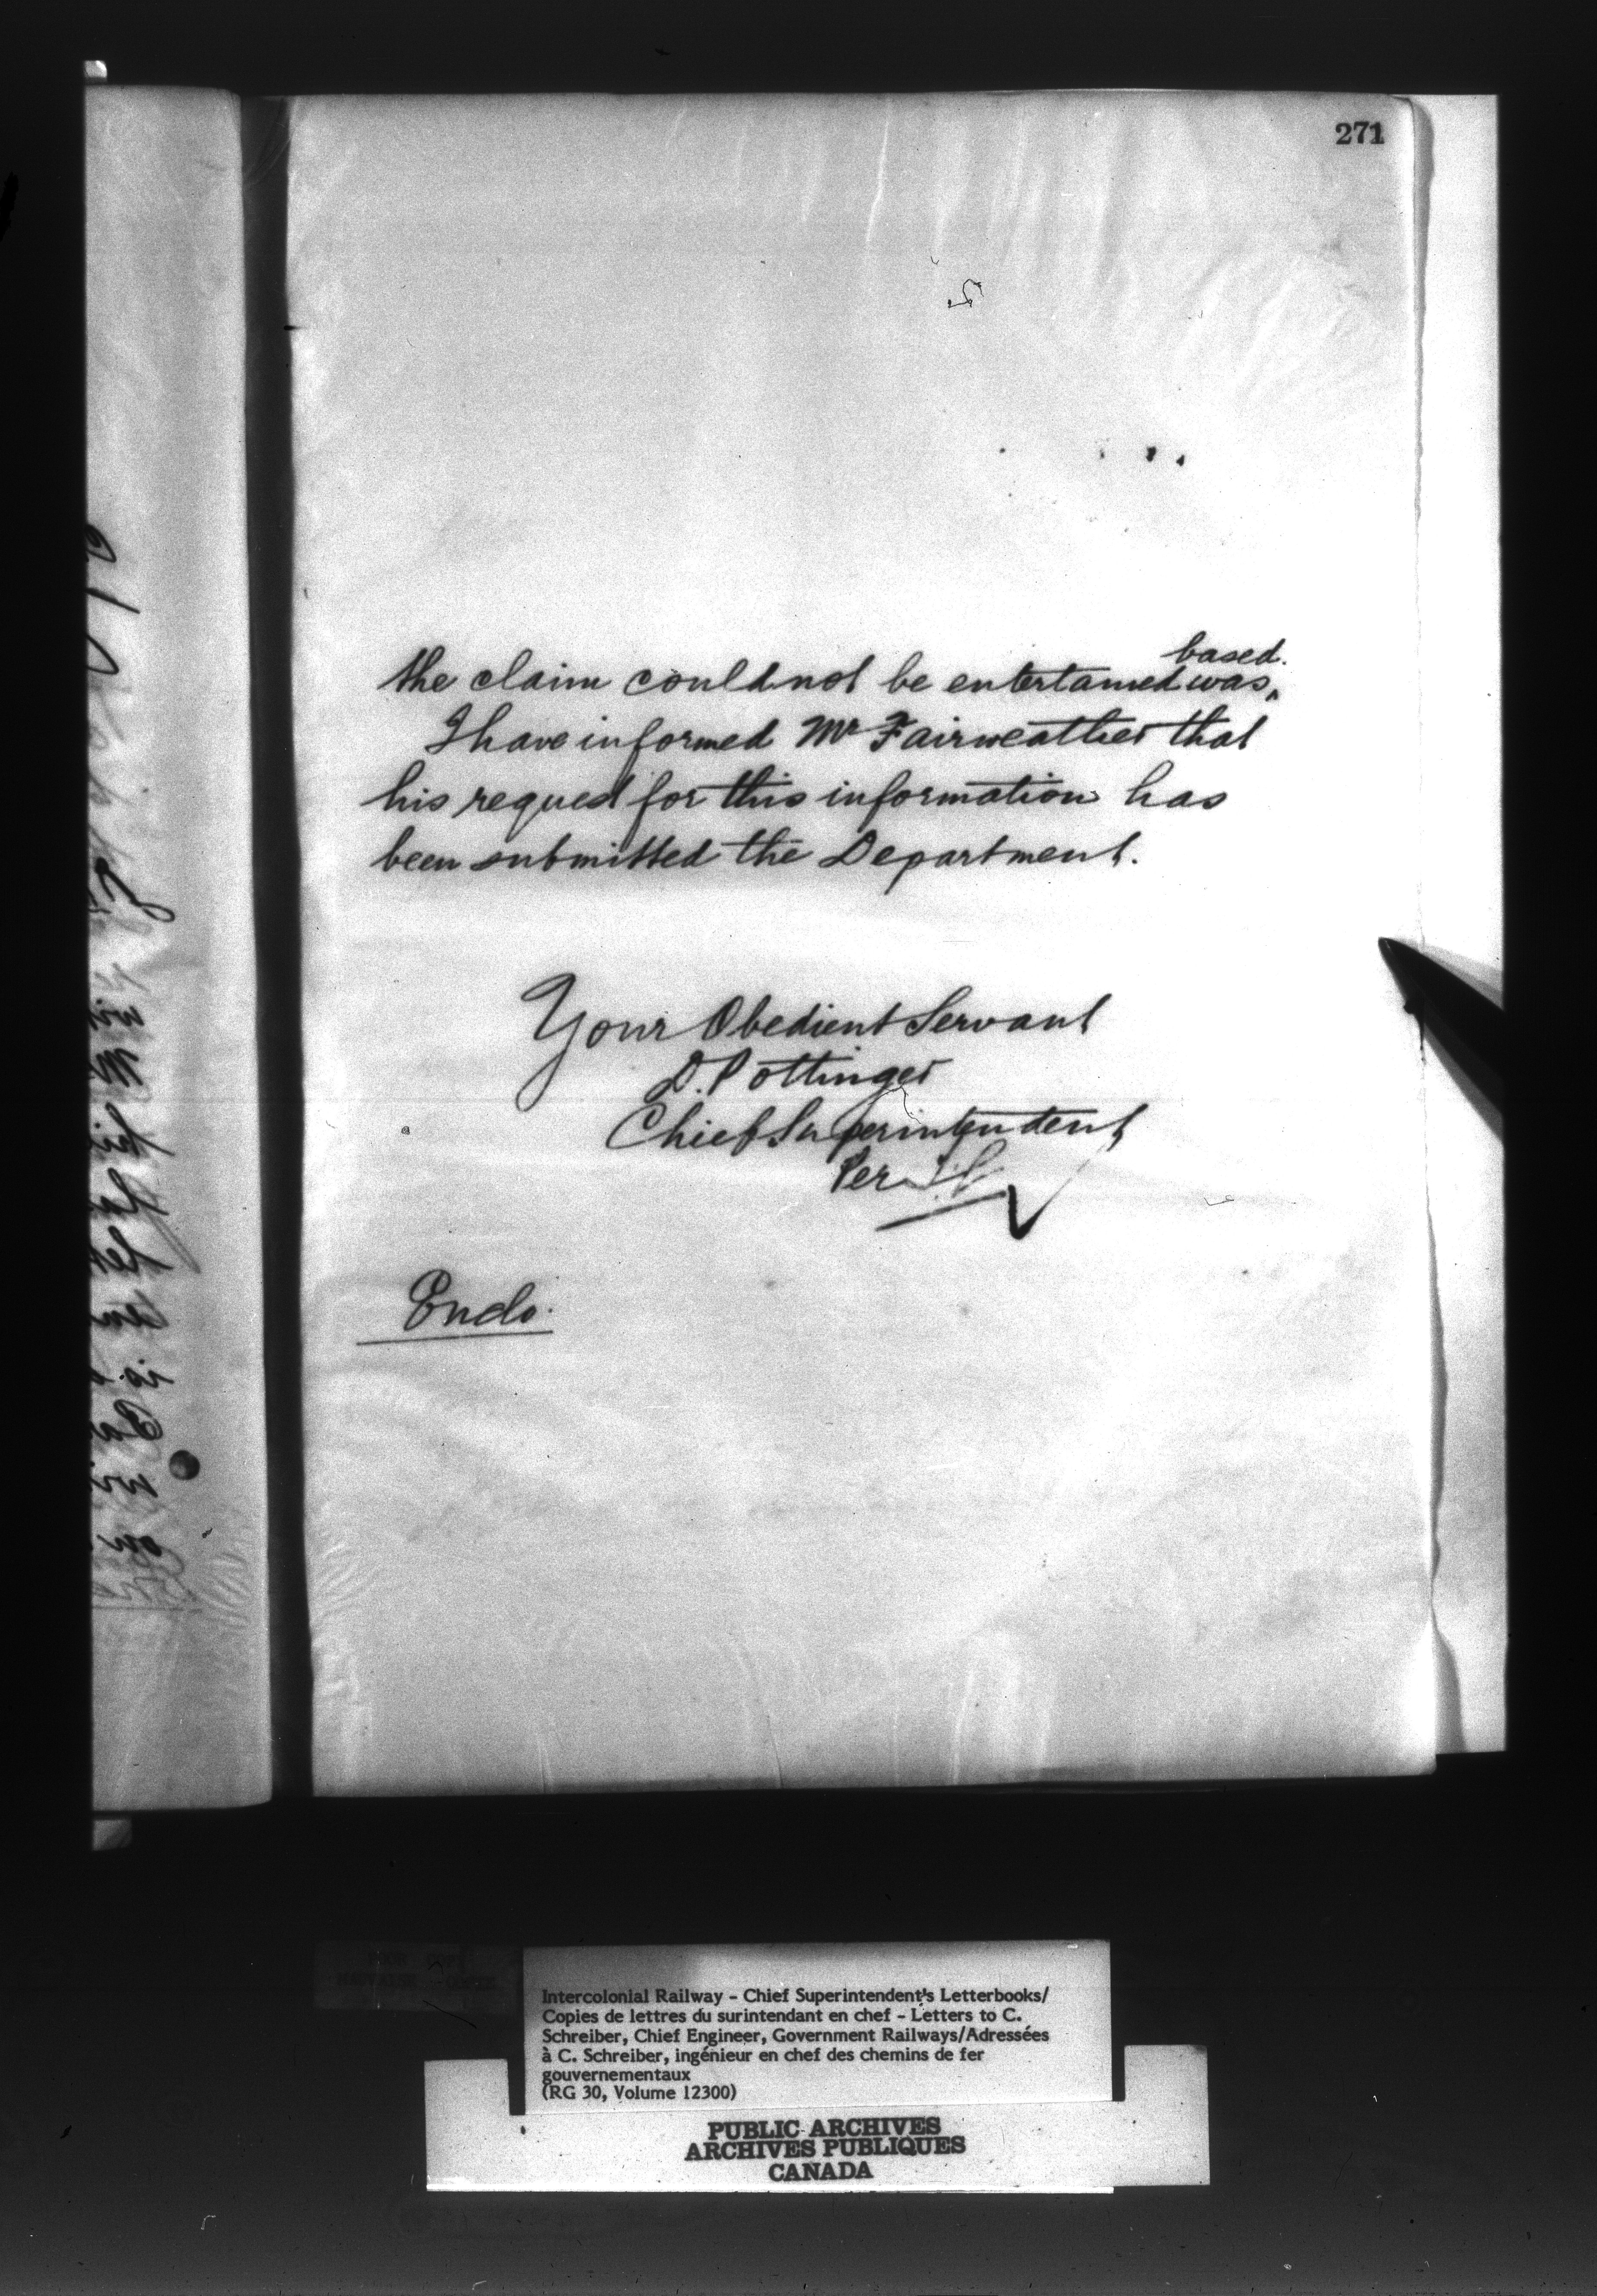 271
2
the claim could not be entertained was based.
I have informed Mr Fairweather that
his request for this information has
been submitted the Department.
Your Obedient Servant
D. Pottinger
Chief Superintendent
Per
Enclo.
Intercolonial Railway - Chief Superintendent's Letterbooks/
Copies de lettres du surintendant en chef - Letters to C.
Schreiber, Chief Engineer, Government Railways/Adressées
à C. Schreiber, ingénieur en chef des chemins de fer
gouvernementaux
(RG 30, Volume 12300)
PUBLIC ARCHIVES
ARCHIVES PUBLIQUES
CANADA